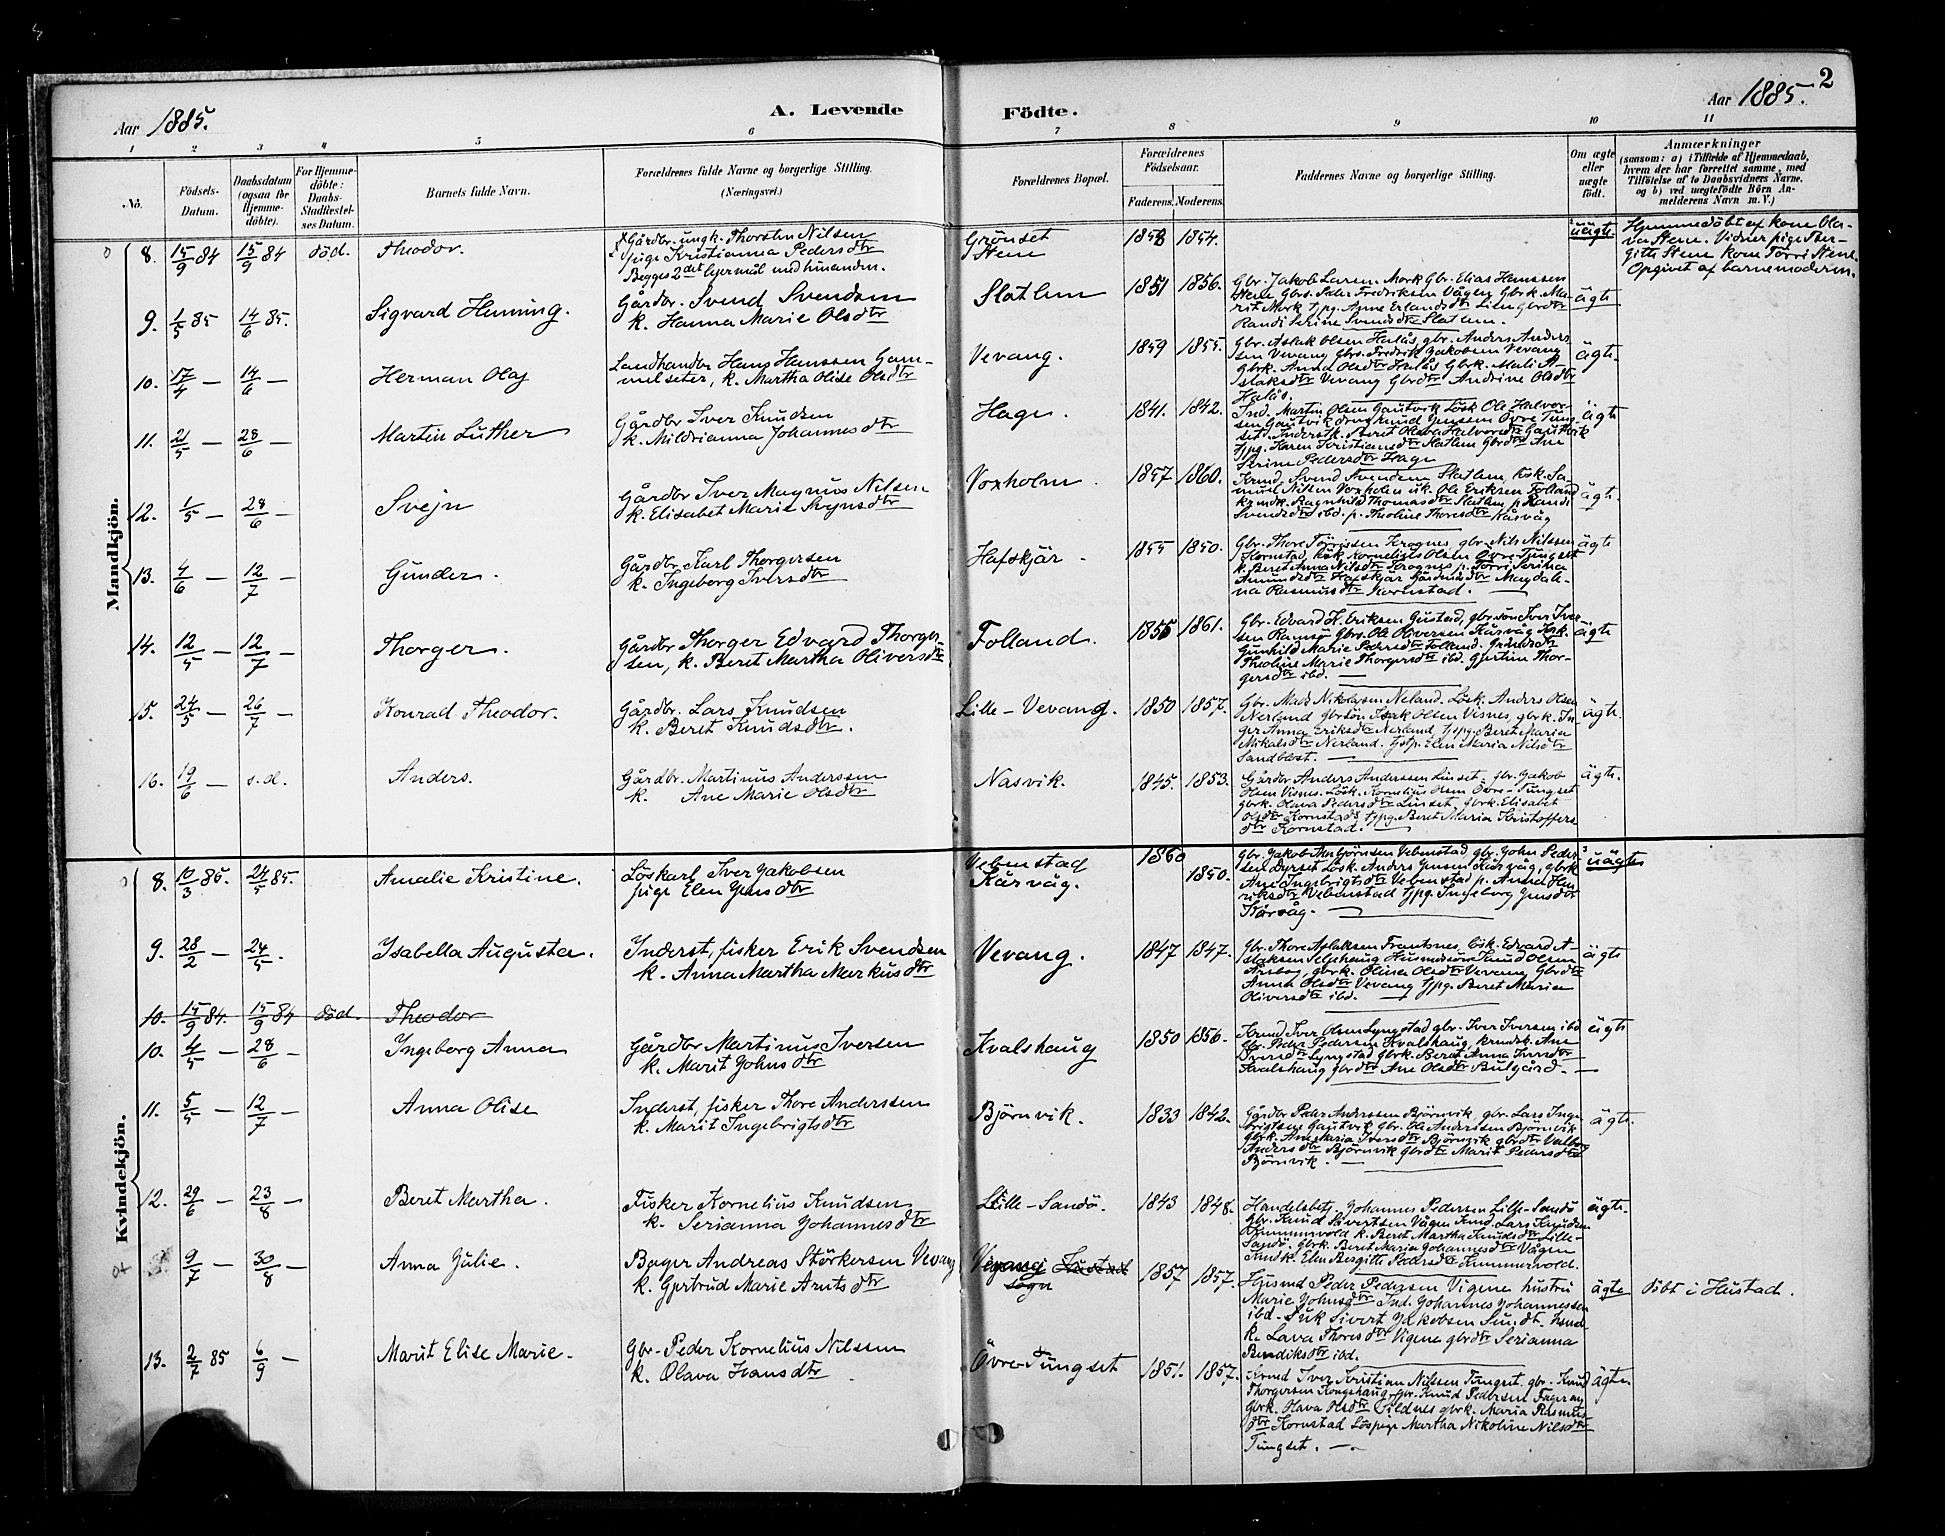 2
Aar 1885.
A. Levende
Födte.
Aar 1885.
1 2 3 4 5 6 7 8 9 10 11
No.
Födsels-Datum.
Daabsdatum (ogsaa for Hjemmedöbte).
For Hjemmedöbte: Daabs-Stadfæstelses Datum.
Barnets fulde Navn.
Forældrenes fulde Navne og borgerlige Stilling. (Næringsvei.)
Forældrenes Bopæl.
Forældrenes Födselsaar.
Faderens. Moderens.
Faddernes Navne og borgerlige Stilling.
Om ægte eller uægte födt.
Anmærkninger
(saasom: a) i Tilfælde af Hjemmedaab, hvem der har forrettet samme, med Tilföielse af to Daabsvidners Navne, og b) ved uægtefödte Börn Anmelderens Navn m. V.)
Mandkjön.
8. 15/9 84 15/9 84 död. Theodor.
Gårdbr. ungk. Thorsten Nilsen
pige Kristianna Pedersdtr
Begges 2det leiermål med hinanden.
Grönset
Stene
1858 1854. uägte.
Hjemmedöbt af kone Olava Stene. Vidner pige Bergitte Stene kone Torri Stene. Opgivet af barnemoderen.
9. 1/5 85 14/6 85. Sigvard Henning.
Gårdbr. Svend Svendsen
k. Hanna Marie Olsdtr
Slatlem 1851 1856.
Gbr. Jakob Larsen Mork Gbr. Elias Hanssen
Stene Gbrs. Peder Fredriksen Vågen Gbrk. Ma-
rit Mork tjpg. Anne Erlandsdtr Lien gbrdtr
Randi Serine Svendsdtr Slatlem.
ägte
10. 17/4 — 14/6 — Herman Olaj
Landhandler Hans Hanssen Gam-
melseter, k. Martha Olise Olsdtr
Vevang. 1859 1855.
Gbr. Aslak Olsen Halås, gbr. Anders Anders
sen Vevang gbrs. Fredrik Jakobsen Vevang
Gbrk. Anna Olsdtr Halås Gbrk. Mali A-
slaksdtr Vevang Gbrdtr Andrine Olsdtr
Halås.
ägte.
11. 21/5 — 28/6 — Martin Luther
Gårdbr Iver Knudsen
k. Mildrianna Johannesdtr
Hage. 1841. 1842.
Ind. Martin Olsen Gautvik Lösk Ole Halvor-
sen Gautvik
Övre Tung-
set. Inderstk. Beret Olava Halvorsdtr Gautvik
tjpg. Karen Kristiansdtr Slatlem Gbrdtr Ane
Serine Pedersdtr Hage
ägte
12. 1/5 — 28/6 — Svejn
Gårdbr Iver Magnus Nilsen
k. Elisabet Marie Svejnsdtr
Voxholm. 1857 1860.
Svend Svendsen Slatlem, lösk. Sa-
muel Nilsen Voxholm uk. Ole Eriksen Folland
Ragnhild Thomasdtr Slatlem p. Randi
Svendsdtr ibd. p. Theoline Thoresdtr Kårvåg
ägte.
13. 4/6 — 12/7 — Gunder.
Gårdbr Karl Thorgersen
k. Ingeborg Iversdtr
Hafskjär. 1855 1850.
Gbr. Thore Törrissen Krognes, gbr. Nils Nilssen
Kornstad, lösk. Kornelius Olsen Övre Tungset
k. Beret Anna Nilsdtr Krognes p. Torri Serina
Amundsdtr Hafskjär Gårdmdsdtr Magdale-
na Rasmusdtr Kornstad.
ägte
14. 12/5 — 12/7 — Thorger.
Gårdbr Thorger Edvard Thorger-
sen, k. Beret Martha Oliversdtr
Folland. 1855 1861.
Gbr. Edvard H. Eriksen Gustad, gbr.sön Iver Iver-
sen Ramsö Gbrs. Ole Oliversen Kårvåg
Gunhild Marie Pedersdtr Folland.
Theoline Marie Thorgersdtr ibd. Gjertine Thor-
gersdtr ibd.
ägte
15. 24/5 — 26/7 — Konrad Theodor.
Gårdbr. Lars Knudsen
k. Beret Knudsdtr.
Lille-Vevang. 1850 1857.
Gbr. Mads Nikolajsen Neland. Lösk. Anders Olsen
Nerland gbrsön Isak Olsen Visnes, gbrk. In-
ger Anna Eriksdtr Nerland, tjpg. Beret Maria
Mikalsdtr Nerland. tjstp. Elen Maria Nilsdtr
Sandblost.
ägte.
16. 19/6 — s.d. Anders.
Gårdbr. Martinus Anderssen
k. Ane Marie Olsdtr
Nasvik. 1845. 1853.
Gårdbr Anders Anderssen Linset, gbr. Jakob
Olsen Visnes. Lösk. Kornelius Olsen Övre-Tungset
gbrk. Olava Pedersdtr Linset, gbrk. Elisabet
Olsdtr Kornstad, tjpg. Beret Maria Kristoffers
dtr Kornstad.
ägte.
Kvindekjön.
8. 10/3 85. 24/5 85. Amalie Kristine.
Löskarl Iver Jakobsen
pige Elen Jensdtr
Vebenstad
Kårvåg.
1860 1850.
Gbr. Jakob Asbjörnsen Vebenstad, gbr. John Peder-
sen Dyrset Lösk. Anders Jensen Kårvåg, gbrk
Ane Ingebrigtsdtr Vebenstad p. Anna Hen
riksdtr Vebenstad tjpg. Ingeborg Jensdtr
Kårvåg.
uägte
9. 28/2 — 24/5. Isabella Augusta.
Inderst, fisker Erik Svendsen
k. Anna Martha Markusdtr
Vevang. 1847 1847.
Gbr. Thore Aslaksen Frantsnes, lösk. Edvard A-
slaksen Seljehaug Husmdssön Knud Olsen
Årsbog, gbrk. Olina Olsdtr Vevang Gbrdtr
Anna Olsdtr Vevang tjpg. Beret Maria
Oliversdtr ibd.
ägte
10. 15/9 84. 15/9 84 död. Theodor
10. 4/5 — 28/6 — Ingeborg Anna
Gårdbr Martinus Iversen
k. Marit Johnsdtr
Kvalshaug 1850 1856.
Iver Olsen Lyngstad gbr. Iver Iversen ibd
Gbr. Peder Pedersen Kvalshaug, Ane
Iversdtr Lyngstad Gbrk. Beret Anna Iversdtr
Kvalshaug gbrdtr Ane Olsdtr Bulgård.
ägte
11. 5/5 — 12/7 — Anna Olise
Inderst, fisker Thore Anderssen
k. Marit Ingebrigtsdtr
Björnvik. 1833 1842.
Gårdbr Peder Anderssen Björnvik, gbr. Lars Inge
brigtsen Gautvik gbr. Ole Anderssen Björnvik
Gbrk. Ane Maria Iversdtr Björnvik gbrdtr Valborg
Andersdtr Björnvik Gbrdtr Marit Pedersdtr
Björnvik.
ägte.
12. 29/6 — 23/8 — Beret Martha.
Fisker Kornelius Knudsen
k. Serianna Johannesdtr
Lille-Sandö. 1843 1848.
Handelsbetj. Johannes Pedersen Lille-Sandö
Gbr. Knud Sivertsen Vågen Lars Knudsen
Hummervold k. Beret Martha Knudsdtr Lille-
Sandö. Gbrk. Beret Maria Johannesdtr Vågen
Elen Bergitte Pedersdtr Hummervold.
ägte.
9/7 — 30/8 — Anna Julie.
Bager Andreas Störkersen Vevang
k. Gjertrud Marie Arntsdtr
Vevang Hustad
sogn
1857 1857.
Husmd Peder Pedersen Vigene hustru
Marie Johnsdtr Ind. Johannes Johannessen
ibd. Sivert Jakobsen
k. Lava Thoresdtr Vigene gbrdtr Serianna
Bendiksdtr ibd.
ägte döbt i Hustad.
13. 2/7 85 6/9 — Marit Elise Marie.
Gbr. Peder Kornelius Nilssen
k. Olava Hansdtr
Övre-Tungset 1851. 1857.
Iver Kristian Nilssen Tungset. gbr. Knud
Thorgersen Kongshaug, gbr. Knud Pedersen
gbrk. Olava Olsdtr Vildnes gbrk. Maria Rasmus
dtr Kornstad Löspige Martha Nikoline Nilsdtr
Tungset.
ägte.